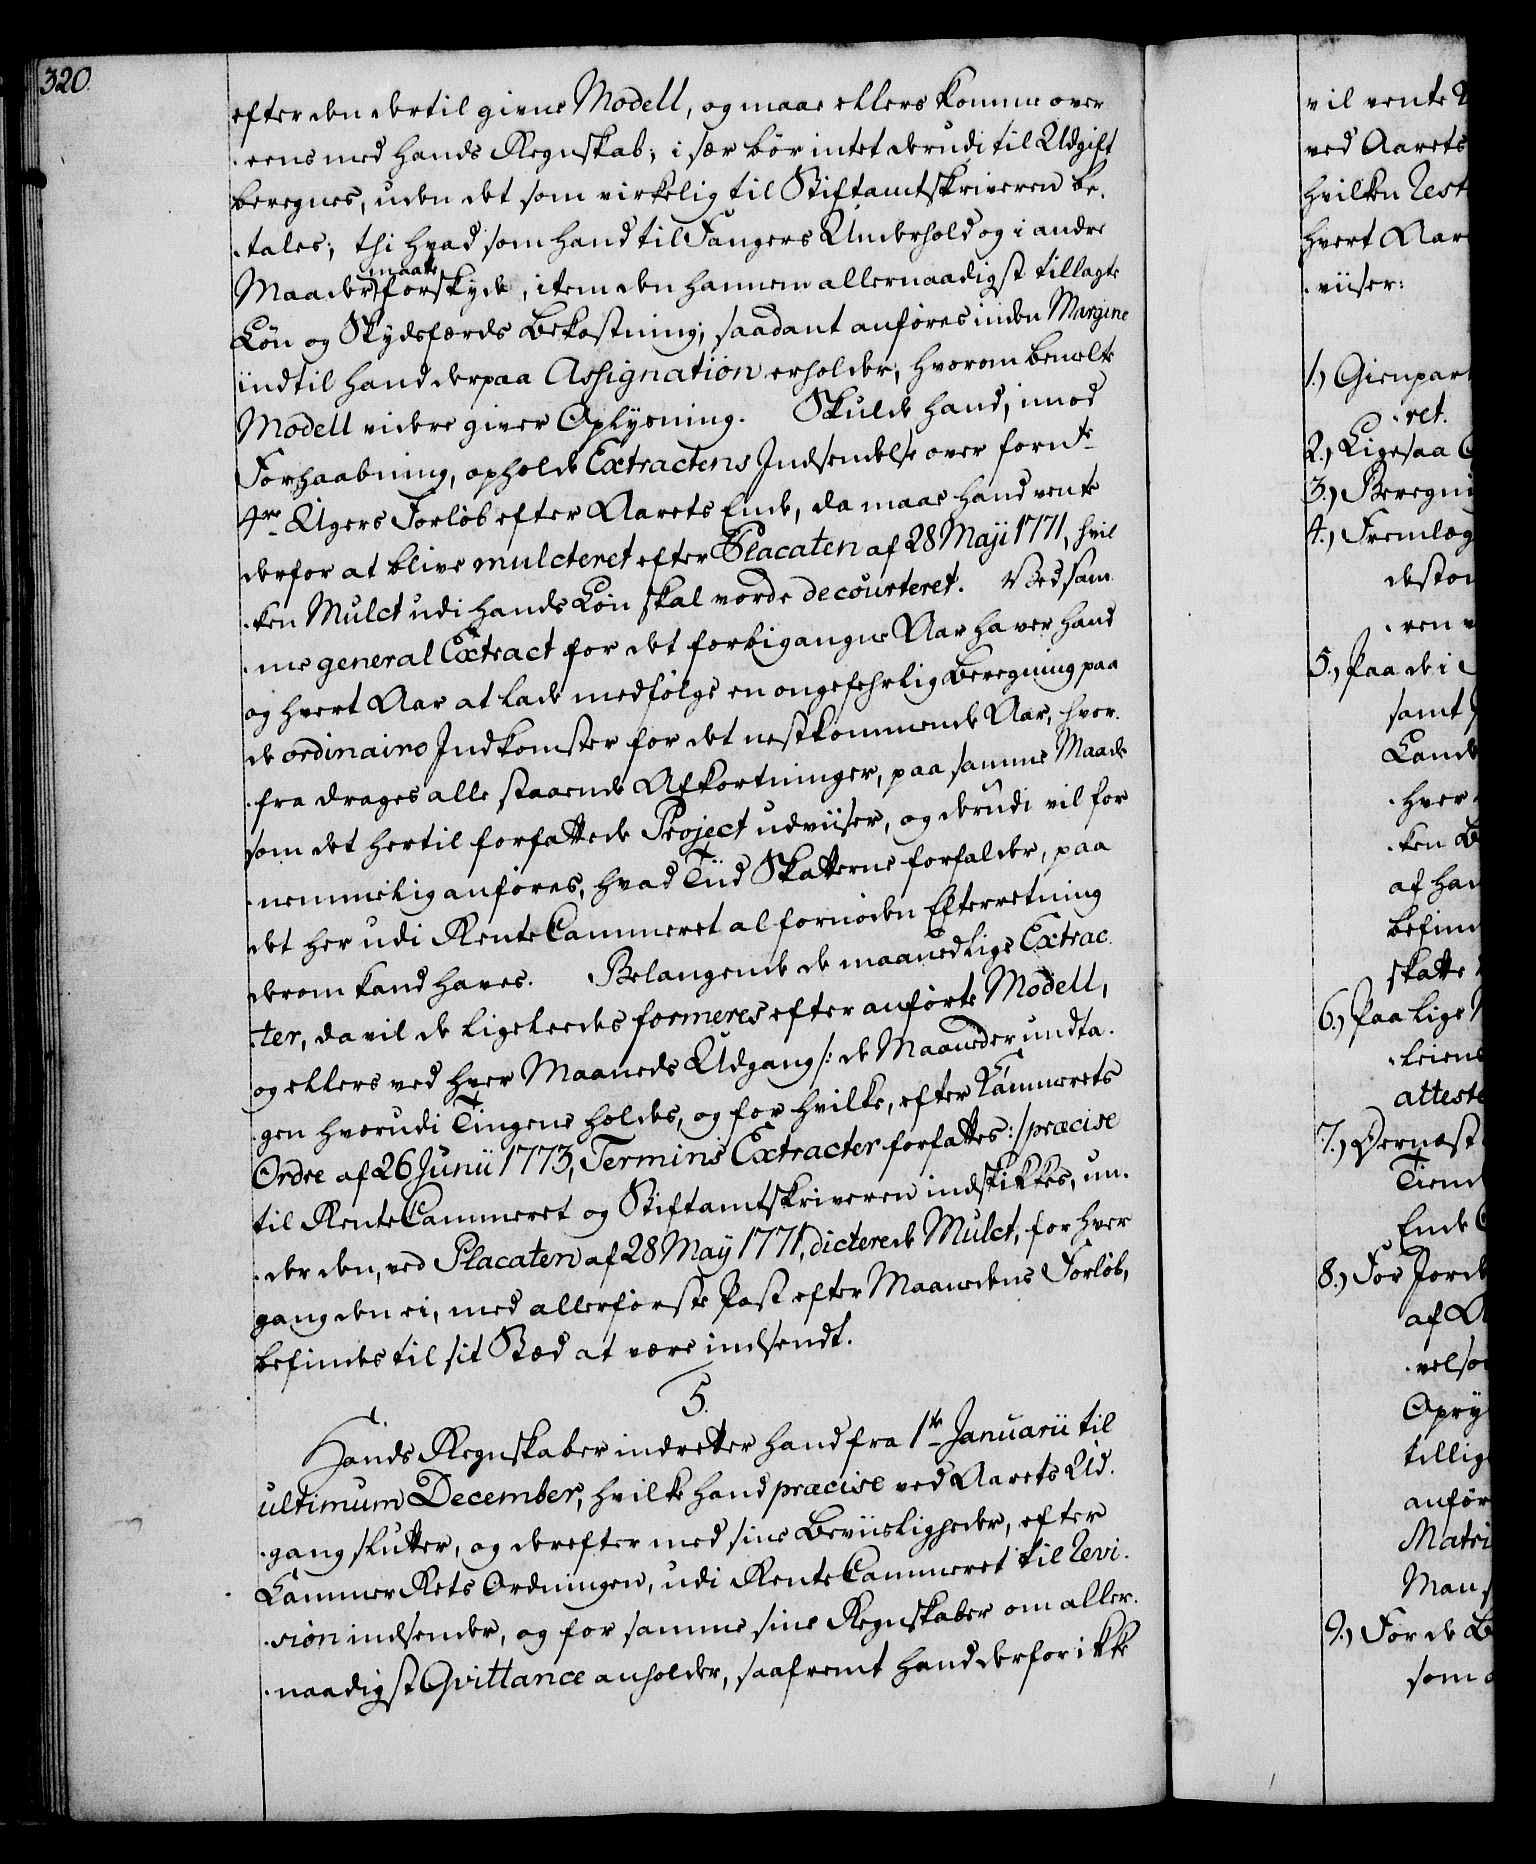 320.
efter den dertil givne Modell, og maae ellers komme over
-eens med hands Regnskab; i sær bør intet derudi til Udgift
beregnes, uden det som virkelig til Stiftamtskriveren be-
-tales; thi hvad som hand til Fangers Underhold og i andre
Maader maatte forskyde, item den hannem allernaadigst tillagte
Løn og Skydsfærds Bekostning; saadant anføres inden Margine
indtil hand derpaa Assignation erholder, hvorom bemelte
Modell videre giver Oplysning. Skulde hand, imod
Forhaabning, opholde Extractens Indsendelse over fornte
4re Ugers Forløb efter Aarets Ende, da maae hand vente
derfor at blive mulcteret efter Placaten af 28 Maji 1771, hvil
-ken Mulct udi hands Løn skal vorde decourteret. Ved sam-
-me general Extract for det forbigangne Aar haver hand
og hvert Aar at lade medfølge en ongefehrlig Beregning paa
de ordinaire Indkomster for det nestkommende Aar, hvor-
-fra drages alle staaende Afkortninger, paa samme Maade
som det hertil forfattede Project udviiser, og derudi vil for
-nemmelig anføres, hvad Tiid Skatterne forfalder, paa
det her udi RenteCammeret al fornøden Efterretning
derom kand haves. Belangende de maanedlige Extrac-
-ter, da vil de ligeleedes formeres efter anførte Modell,
og ellers ved hver Maaneds Udgang /: de Maaneder undta-
-gen hvorudi Tingene holdes, og for hvilke, efter Cammerets
Ordre af 26 Junii 1773, Termins Extracter forfattes :/ præcise
til RenteCammeret og Stiftamtskriveren indskikkes, un-
-der den, ved Placaten af 28 Maÿ 1771, dicterede Mulct, for hver
gang den ei, med allerførste Post efter Maanedens Forløb,
befindes til sit Stæd at være indsendt.
5.
Hands Regnskaber indretter hand fra 1te Januarii til
ultimum December, hvilke hand præcise ved Aarets Ud-
-gang slutter, og derefter med sine Beviisligheder, efter
Cammer Rets Ordningen, udi RenteCammeret til Revi-
-sion indsender, og for samme sine Regnskaber om aller-
-naadigst Qvittance anholder, saafremt hand derfor ikke
vil vente
ved Aarets
hvilken Rest
hvert Aar
-viiser:
1.) Gienpar
-ret.
2.) Ligesaa
3.) Beregni
4.) Fremlæg
desto
-ren
5.) Paa de i
samt
Lande
-hver
-ken
af han
befin
skatte
6.) Paa lige
-leiend
atteste
7.) Dernæst
Tiend
Ende
8.) For Jord
af
-velso
Opry
tillig
anfør
Matri
Man
9.) For de
som